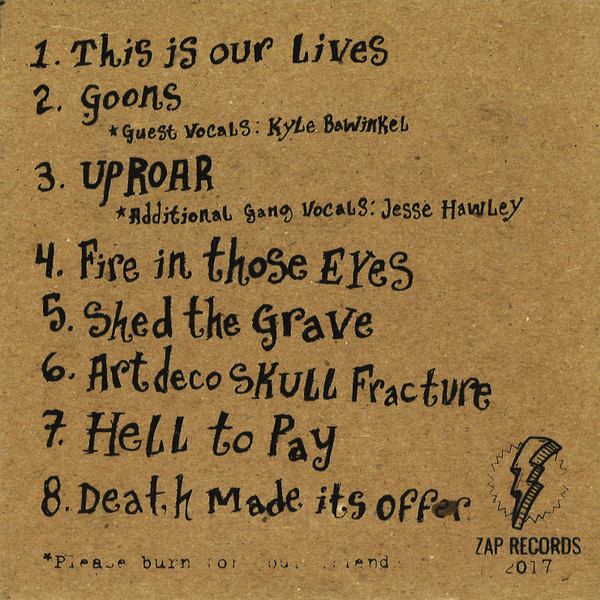 1. This is our Lives
2. Goons
*Guest Vocals: Kyle Bawinkel
3. UPROAR
*Additional Gang Vocals: Jesse Hawley
4. Fire in those Eyes
5. Shed the Grave
6. Art deco Skull Fracture
7. Hell to Pay
8. Death Made its offer
ZAP RECORDS
2017
*Please burn for your friend